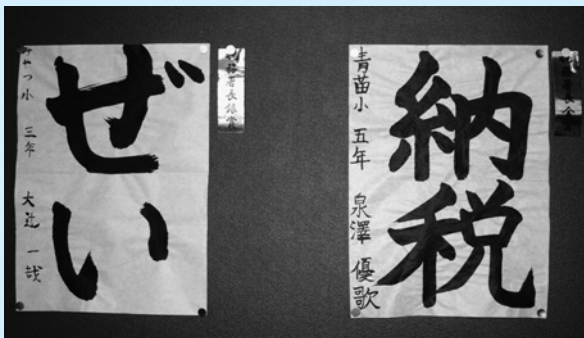 ぜい
三年 大辻 一哉
納税
青苗小 五年 泉澤 優歌